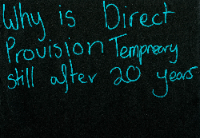 Why is Direct
Provision Temporary
still after 20 years